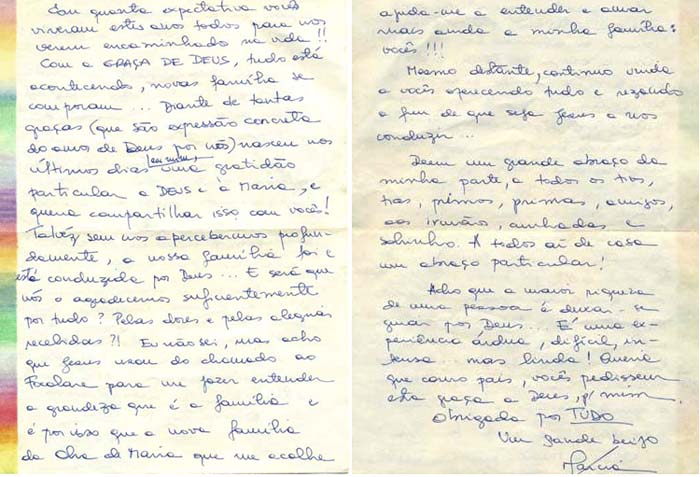 Com quanta expectativa vocês
viveram estes anos todos para nos
verem encaminhado na vida!!
Com a GRAÇA DE DEUS, tudo está
acontecendo, novas família se
comporam... Diante de tantas
graças (que são expressão concreta
do amor de Deus por nós) nasceu nos
últimos dias em mim uma gratidão
particular a DEUS e à Maria, e
queria compartilhar isso com vocês!
Talvez sem nos apercebermos profun-
damente, a nossa família foi e
está conduzida por Deus... E será que
nós o agradecemos suficientemente
por tudo? Pelas dores e pelas alegrias
recebidas?! Eu não sei, mas acho
que Jesus usou do chamado ao
Focolare para me fazer entender
a grandeza que é a família e
é por isso que a nova família
da Obra de Maria que me acolhe
ajuda-me a entender e amar
mais ainda a minha família:
vocês!!!
Mesmo distante, continuo unida
a vocês oferecendo tudo e rezando
a fim de que seja Jesus a nos
conduzir...
Deem um grande abraço da
minha parte, a todos os tios,
tias, primos, primas, amigos,
aos irmãos, cunhadas e
sobrinho. A todos aí de casa
um abraço particular!
Acho que a maior riqueza
de uma pessoa é deixar-se
guiar por Deus... É uma ex-
periência árdua, difícil, in-
tensa... mas linda! Queria
que como pais, vocês pedissem
esta graça a Deus, p/ mim.
Obrigada por TUDO
Um grande beijo
Márcia